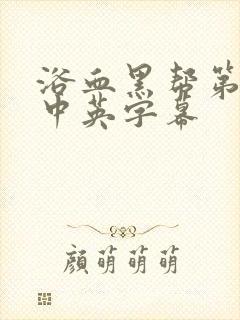 浴血黑帮第
中英字幕
顏萌萌萌